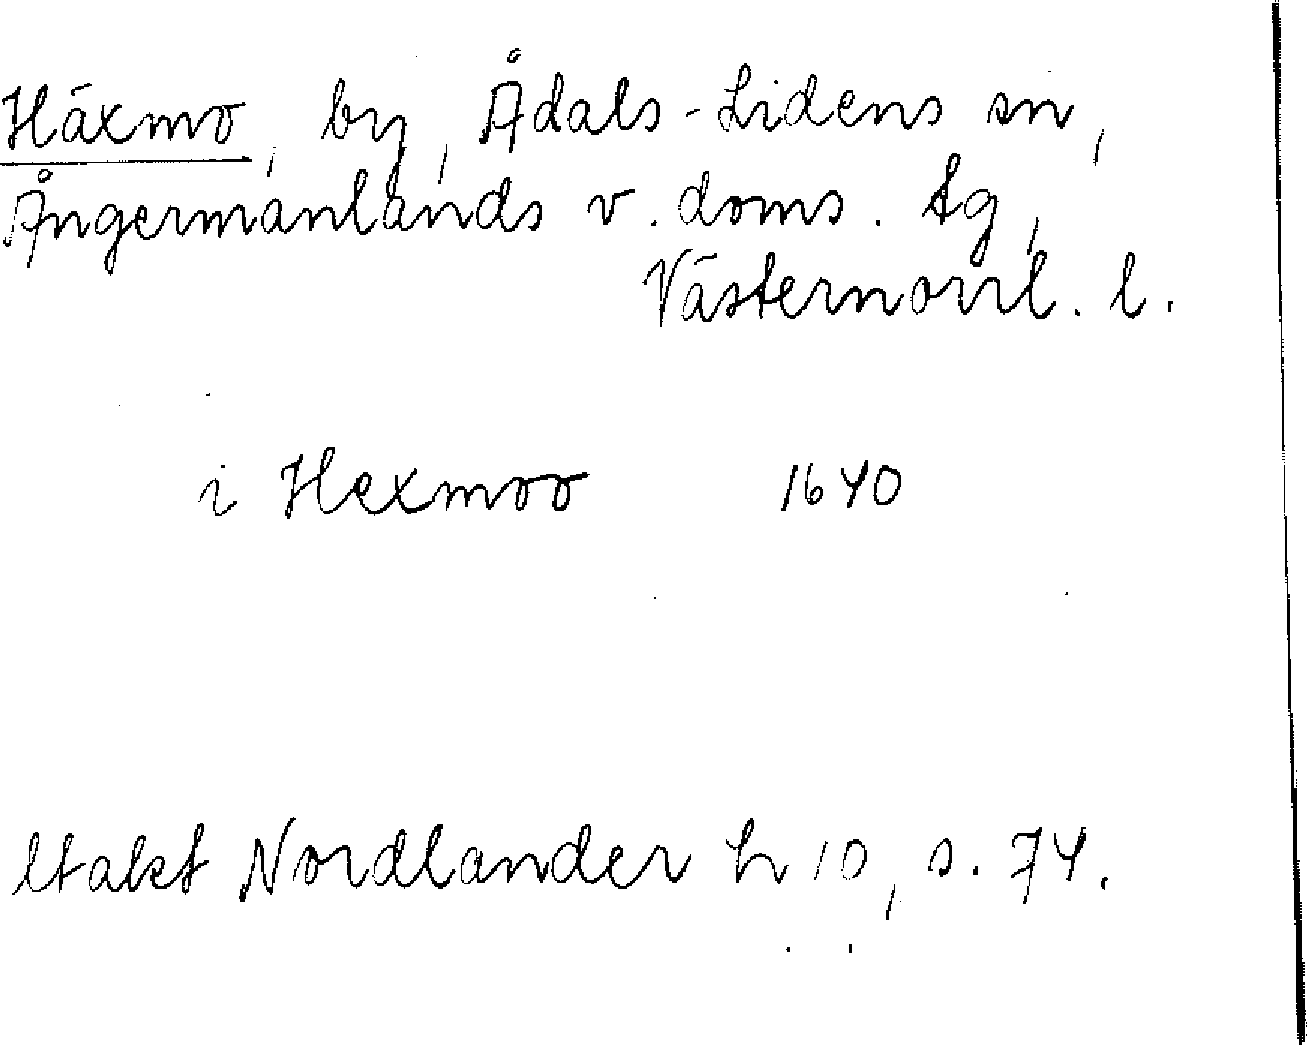 Häxmo, by, Ådals-Lidens sn,
Ångermanlands v. doms. tg,
Västernorrl. l.
i Hexmoo 1640
ltakt Nordlander h 10, s. 74.